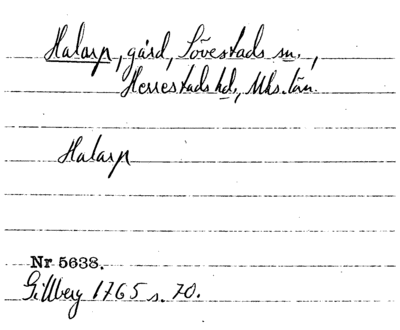 Halarp, gård, Sövestads sn.,
Herrestads hd., Mhs. län.
Halarp
Nr 5638.
Gillberg 1765 s. 70.